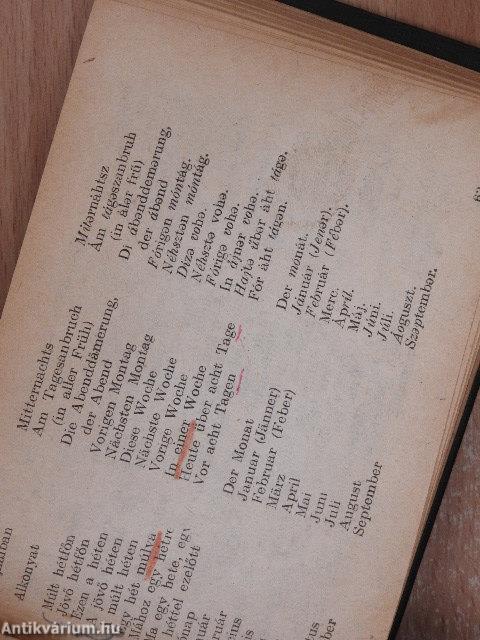 Alkonyat
Múlt hétfőn
Jövő hétfőn
Ezen a héten
A jövő héten
múlt héten
hét múlva
Mához egy hétre
ma egy hete, egy
héttel ezelőtt
Mitternachts
Am Tagesanbruch
(in aller Früh)
Die Abenddämerung,
der Abend
Vorigen Montag
Nächsten Montag
Diese Woche
Nächste Woche
Vorige Woche
In einer Woche
Heute über acht Tage
Vor acht Tagen
Der Monat
Januar (Jänner)
Februar (Feber)
März
April
Mai
Juni
Juli
August
September
Mitərnáhtsz
Ám tágəszanbruh
(in álər frü)
Di ábənddemərung,
der ábənd
Fórigən móntág.
Néhsztən móntág.
Dizə vohə.
Néhsztə vohə.
Fórigə vohə.
In ájnər vohə.
Hajtə übər áht tágə.
Fór áht tágən.
Der monát.
Jánuár (Jenər).
Február (Fébər).
Merc.
Ápril.
Máj.
Júni.
Júli.
Áoguszt.
Szəptembər.
Antikvárium.hu